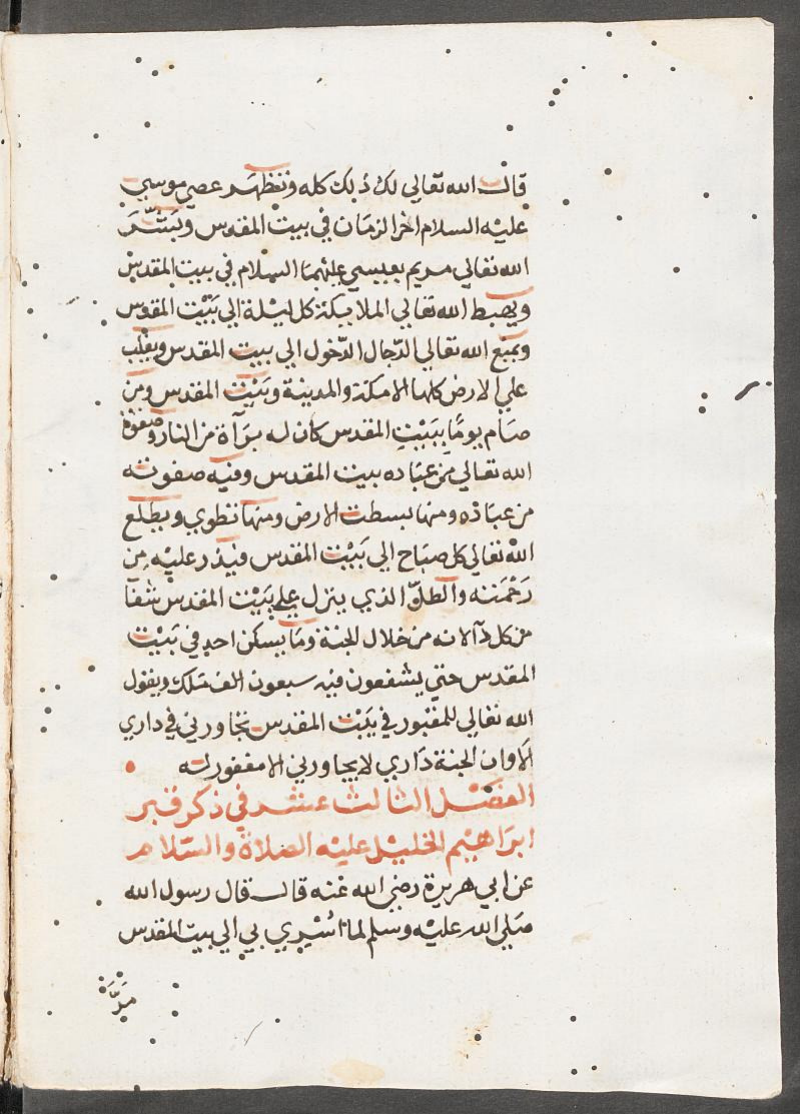 قال الله تعالي لك ذلك كله وتظهر عصي موسي
عليه السلام اخر الزمان في بيت المقدس ويبشر
الله تعالي مريم بعيسي عليهما السلام في بيت المقدس
ويهبط الله تعالي الملايكة كل ليلة الي بيت المقدس
ويمنع الله تعالي الدجال الدخول الي بيت المقدس ويغلب
علي الارض كلها الا مكة والمدينة وبيت المقدس ومن
صام يوما ببيت المقدس كان له برآة من النار وصفوة
الله تعالي من عباده بيت المقدس وفيه صفوته
من عباده ومنها بسطت الارض ومنها تطوي ويطلع
الله تعالي كل صباح الي بيت المقدس فيذر عليه من
رحمته والطل الذي ينزل علي بيت المقدس شفآ
من كل دآ لانه من خلال الجنة وما يسكن احد في بيت
المقدس حتي يشفعون فيه سبعون الف ملك ويقول
الله تعالي للمقبور في بيت المقدس تجاورني في داري
الا وان الجنة داري لا يجاورني الا مغفور له
الفصل الثالث عشر في ذكر قبر
ابراهيم الخليل عليه الصلاة والسلام
عن ابي هريرة رضي الله عنه قال قال رسول الله
صلي الله عليه وسلم لما اسري بي الي بيت المقدس